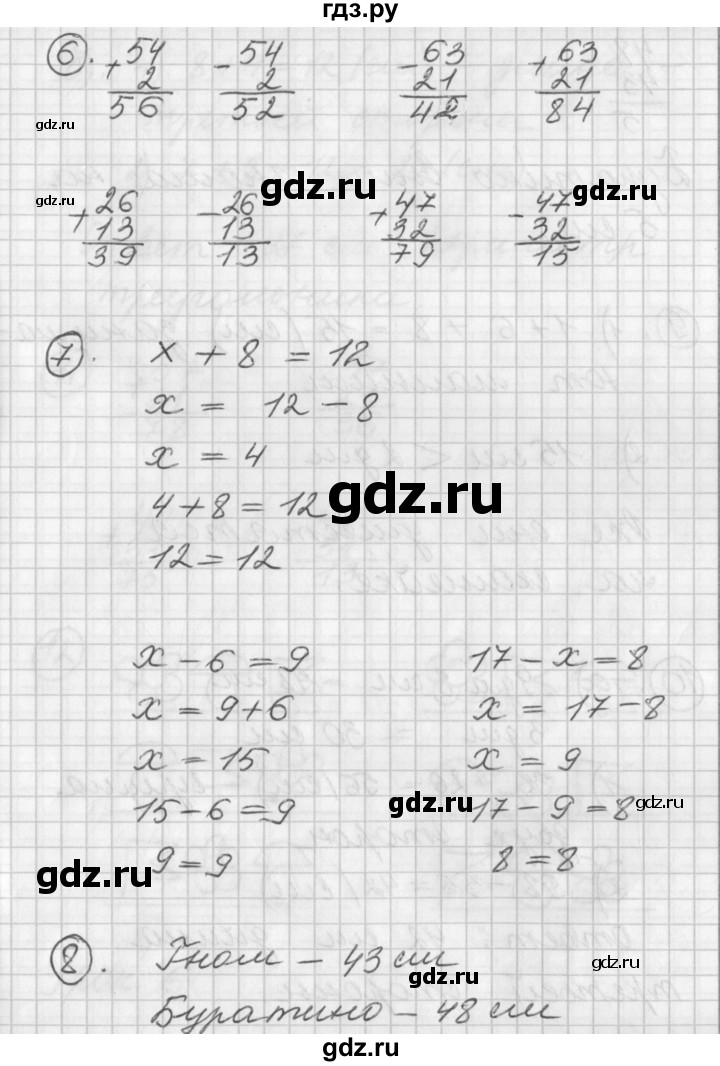 гдз.ру
6. +54 -54 -63 +63
2 2 21 21
56 52 42 84
gdz.ru gdz.ru
gdz.ru gdz.ru gdz.ru
+26 -26 +47 -47
13 13 32 32
39 13 79 15
7. x + 8 = 12
x = 12 - 8
x = 4
4 + 8 = 12
gdz.ru
12 = 12
x - 6 = 9 17 - x = 8
x = 9 + 6 x = 17 - 8
x = 15 x = 9
15 - 6 = 9 gdz.ru 17 - 9 = 8 gdz.ru
gdz.ru 9 = 9 8 = 8
8. Гном - 43 см
gdz.ru gdz.ru
Буратино - 48 см
gdz.ru